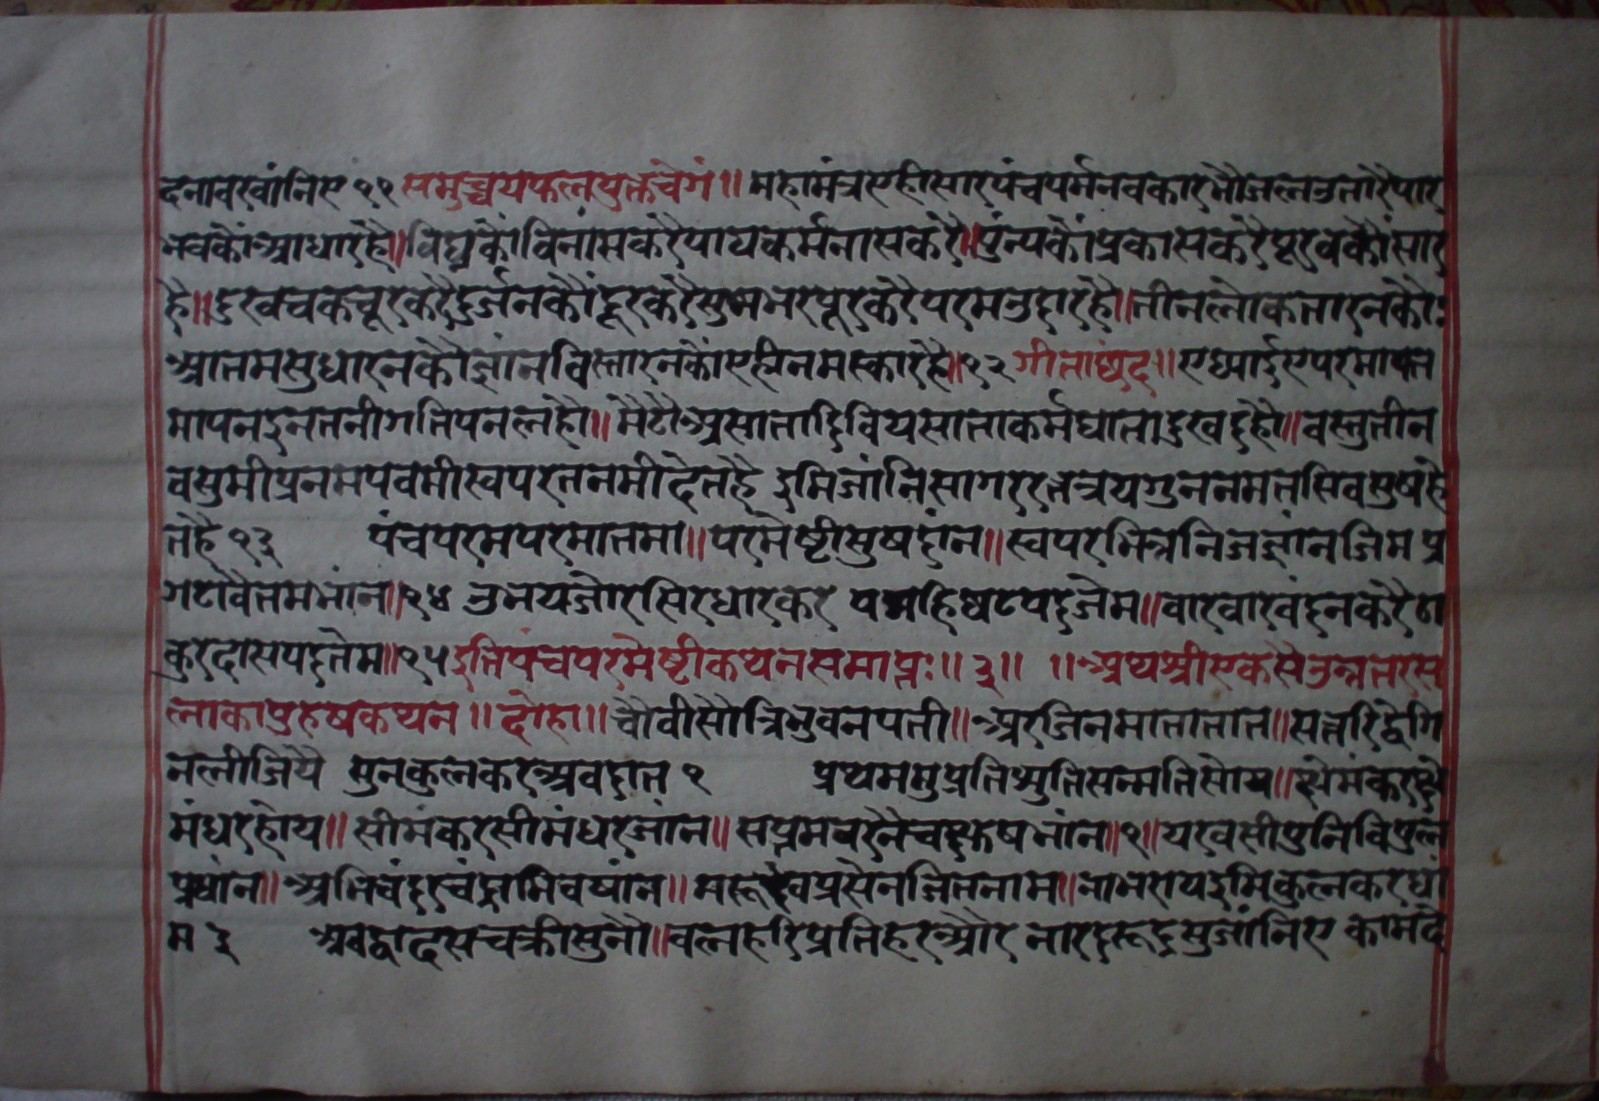 दनावखांनिए ११ समुच्चयफलयुक्तचेगं॥ महामंत्रएहीसारपंचपर्मनवकारभौजलउतारैपार
भवकौंआधारहै॥विघ्नकौंविनांसकरैपापकर्मनासकरै॥पुंन्यकौंप्रकासकरैपूरवकौंसार
है॥दुखचकचूरकरैदुर्जनकौंदूरकरैसुषभरपूरकरैपरमउदारहै॥तीनलोकतारनकौं
आतमसुधारनकौज्ञांनविस्तारनकौंएहीनमस्कारहै॥१२ गीताछंद॥ एध्याईएपरमापत
मापनइनतनीगतिपनलहौ॥मेटौअसातादिवियसाताकर्मघातादुखदहौ॥वस्तुतीन
वसुमीप्रनमपवमीस्वपरतनमीदेतहै इमिजांनिसागररत्नत्रयगुननमतसिवपुषहे
तहै १३ पंचपरमपरमातमा॥परमेष्टीसुषदांन॥स्वपरभिन्ननिजज्ञांनजिमप्र
गटावैतमभांन॥१४ उभयजोरसिरधारकर पद्महिषटपदजेम॥वारवारवंदनकरैठा
कुरदासपदतेम॥१५इतिपंचपरमेष्टीकथनसमाप्तः॥३॥ ॥अथश्रीएकसैउनत्तरस
लाकापुरुषकथन॥दोहा॥चौवीसौत्रिभुवनपती॥अरजिनमातातात॥सत्तरिद्वैगि
नलीजियै सुनकुलकरअवदात १ प्रथमसुप्रतिश्रुतिसन्मतिसोय॥क्षेमंकरक्षे
मंधरहोय॥सीमंकरसीमंधरजांन॥सप्तमवरनैचक्षुषभांन॥१॥यस्वसीपुनिविपुल
प्रधांन॥अभिचंदचंद्राभिवषांन॥मरूदेवप्रसेनजितनाम॥नाभरायइमिकुलकरधां
म ३ अवद्वादसचक्रीसुनौ॥वलहरिप्रतिहरऔर नारदरूद्रसुजांनिए कामदे